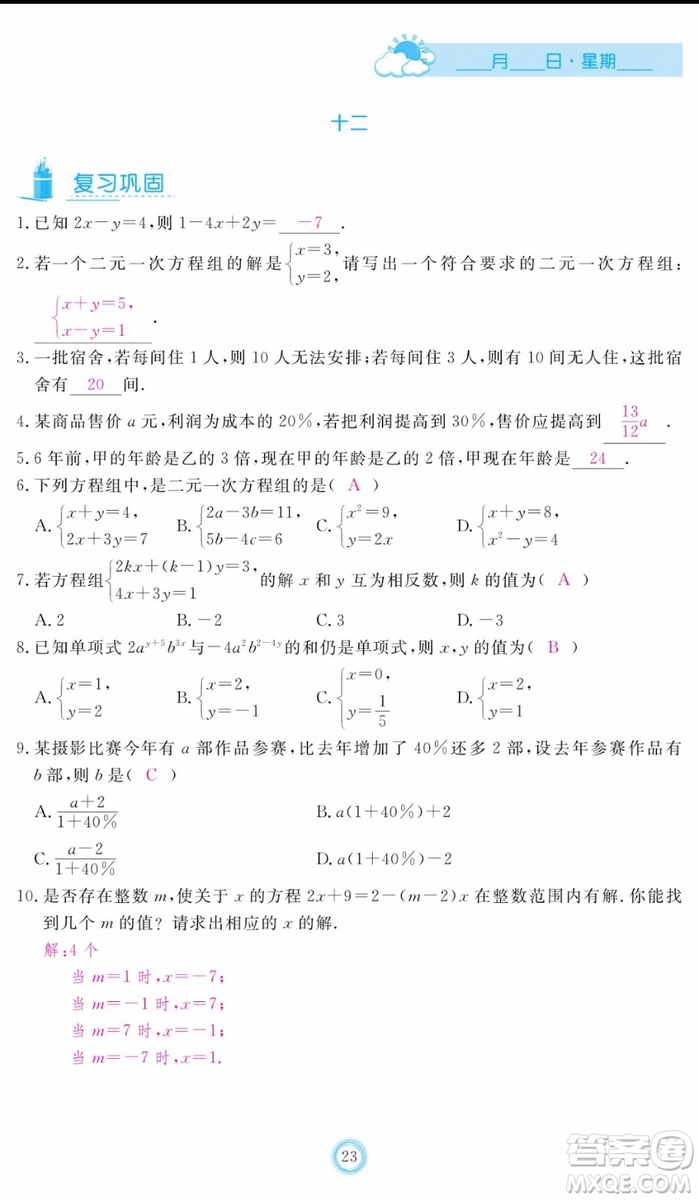 ____月____日·星期____
十二
复习巩固
1.已知 2x－y＝4,则 1－4x＋2y＝ －7 .
2.若一个二元一次方程组的解是{x＝3, y＝2, 请写出一个符合要求的二元一次方程组:
{x＋y＝5, x－y＝1 .
3.一批宿舍,若每间住 1 人,则 10 人无法安排;若每间住 3 人,则有 10 间无人住,这批宿
舍有 20 间.
4.某商品售价 a 元,利润为成本的 20%,若把利润提高到 30%,售价应提高到 13/12 a .
5.6 年前,甲的年龄是乙的 3 倍,现在甲的年龄是乙的 2 倍,甲现在年龄是 24 .
6.下列方程组中,是二元一次方程组的是( A )
A.{x＋y＝4, 2x＋3y＝7 B.{2a－3b＝11, 5b－4c＝6 C.{x²＝9, y＝2x D.{x＋y＝8, x²－y＝4
7.若方程组{2kx＋(k－1)y＝3, 4x＋3y＝1 的解 x 和 y 互为相反数,则 k 的值为( A )
A. 2 B.－2 C. 3 D.－3
8.已知单项式 2a^(y＋5)b^(3x)与－4a²b^(2－4y)的和仍是单项式,则 x,y 的值为( B )
A.{x＝1, y＝2 B.{x＝2, y＝－1 C.{x＝0, y＝1/5 D.{x＝2, y＝1
9.某摄影比赛今年有 a 部作品参赛,比去年增加了 40%还多 2 部,设去年参赛作品有
b 部,则 b 是( C )
A. (a＋2)/(1＋40%) B. a(1＋40%)＋2
C. (a－2)/(1＋40%) D. a(1＋40%)－2
10.是否存在整数 m,使关于 x 的方程 2x＋9＝2－(m－2)x 在整数范围内有解.你能找
到几个 m 的值? 请求出相应的 x 的解.
解:4 个
当 m＝1 时,x＝－7;
当 m＝－1 时,x＝7;
当 m＝7 时,x＝－1;
当 m＝－7 时,x＝1.
23
答案圈
MXQE.COM